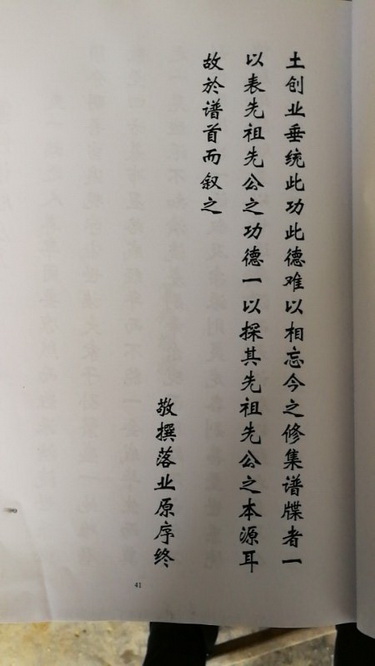 土创业垂统此功此德难以相忘今之修集谱牒者一
以表先祖先公之功德一以探其先祖先公之本源耳
故於谱首而叙之
敬撰落业原序终
41